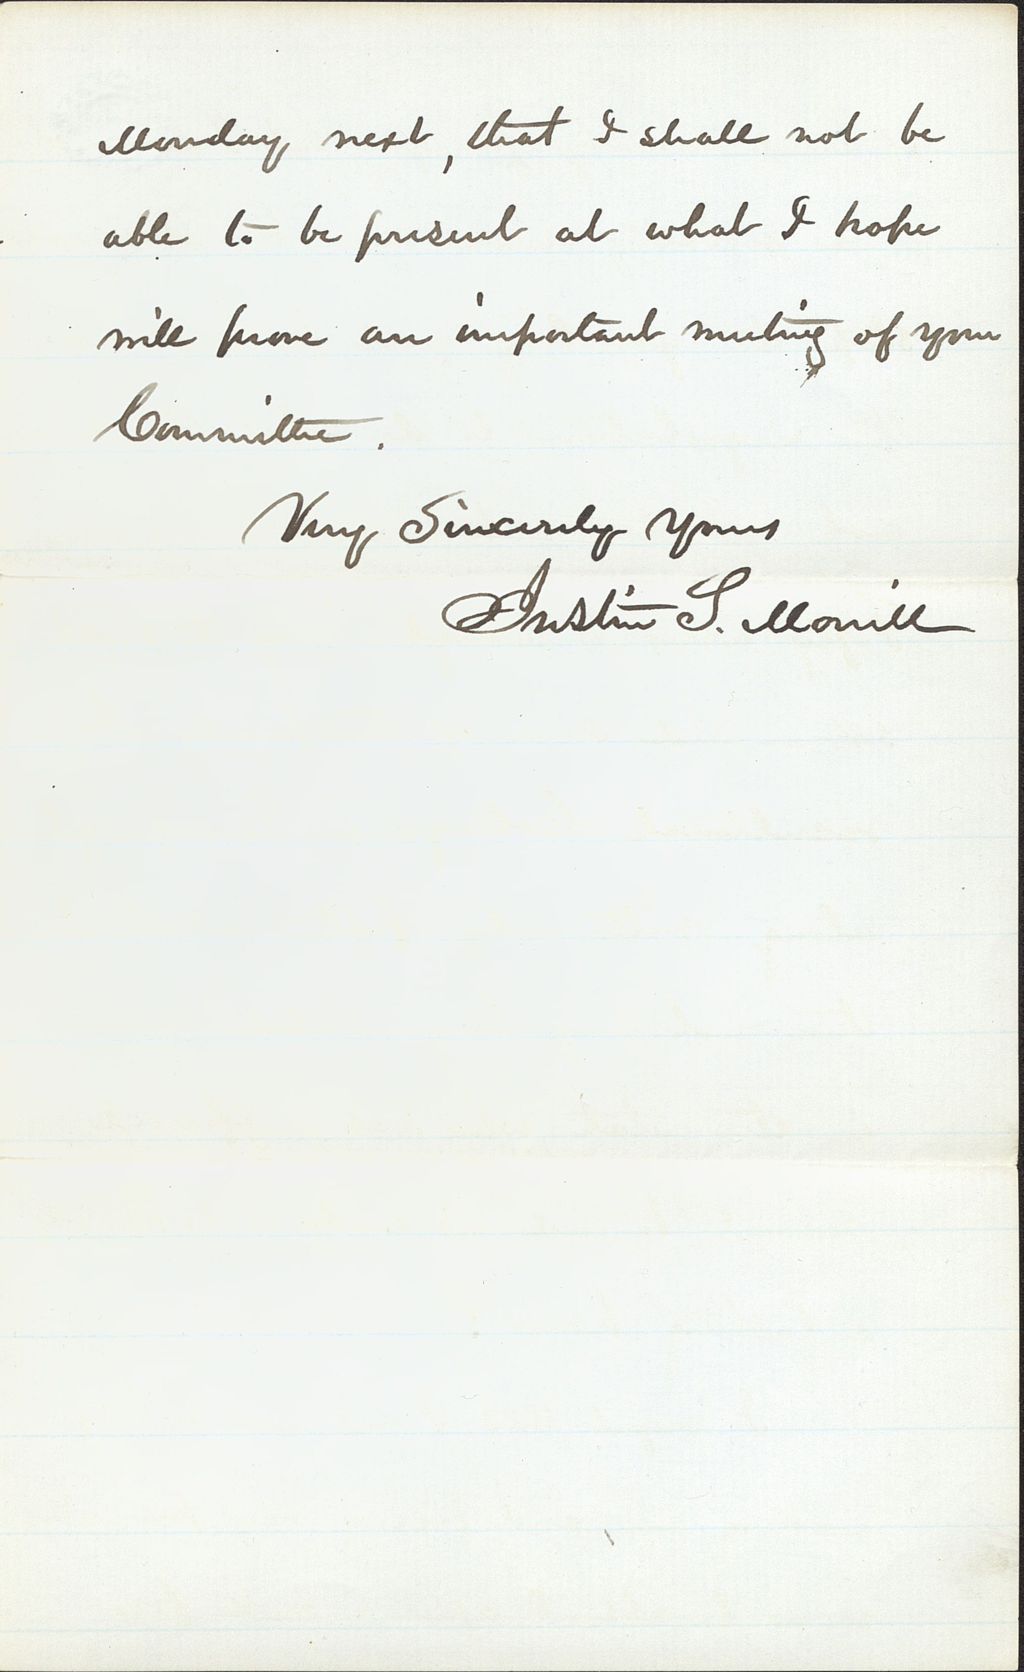 Monday next, that I shall not be
able to be present at what I hope
will prove an important meeting of your
Committee.
Very Sincerely Yours
Justin S. Morrill